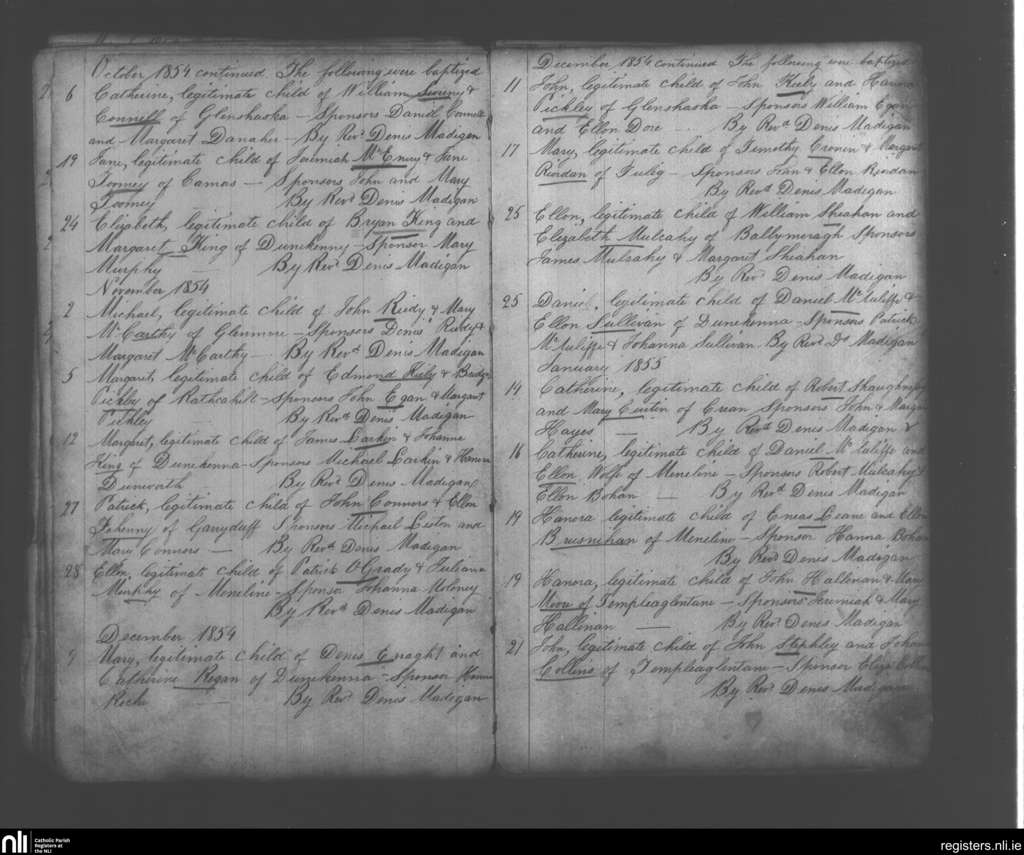 October 1854 continued The following were baptized
6 Catherine, legitimate child of William Sweeny &
Connell of Glenshaska — Sponsors Daniel Connell
and Margaret Danaher — By Revd Denis Madigan
19 Jane, legitimate child of Jeremiah McEniry & Jane
Toomey of Camas — Sponsors John and Mary
Toomey — By Revd Denis Madigan
24 Elizabeth, legitimate child of Bryan King and
Margaret King of Dunekenny — Sponsor Mary
Murphy — By Revd Denis Madigan
November 1854
2 Michael, legitimate child of John Riedy & Mary
McCarthy of Glenmore — Sponsors Denis Riedy &
Margaret McCarthy — By Revd Denis Madigan
5 Margaret, legitimate child of Edmond Kiely &
of Rathcahill — Sponsors John Egan & Margaret
By Revd Denis Madigan
12 Margaret, legitimate child of James Larkin & Johanna
King of Dunekenna — Sponsors Michael Larkin & Hanora
Dunworth By Revd Denis Madigan
27 Patrick, legitimate child of John Connors & Ellen
of Garryduff Sponsors Michael Liston and
Mary Connors — By Revd Denis Madigan
28 Ellen, legitimate child of Patrick O'Grady & Juliana
Murphy of Meneline — Sponsor Johanna Moloney
By Revd Denis Madigan
December 1854
9 Mary, legitimate child of Denis Enaght and
Catherine Regan of Dunekenna — Sponsor
Roche — By Revd Denis Madigan
December 1854 continued The following were baptized
11 John, legitimate child of John Kiely and Hanora
of Glenshaska — Sponsors William Egan
and Ellen Dore — By Revd Denis Madigan
17 Mary, legitimate child of Timothy Cronin & Margaret
Riordan of Tulig — Sponsors & Ellen Riordan
By Revd Denis Madigan
25 Ellen, legitimate child of William Sheahan and
Elizabeth Mulcahy of Ballymuragh Sponsors
James Mulcahy & Margaret Sheahan
By Revd Denis Madigan
25 Daniel, legitimate child of Daniel McAuliffe &
Ellen Sullivan of Dunekenna — Sponsors Patrick
McAuliffe & Johanna Sullivan By Revd Ds Madigan
January 1855
14 Catherine, legitimate child of Robert Shaughnessy
and Mary Curtin of Crean Sponsors John &
Hayes — By Revd Denis Madigan
16 Catherine, legitimate child of Daniel McAuliffe and
Ellen Wolfe of Meneline — Sponsors Robert Mulcahy &
Ellen Bohan — By Revd Denis Madigan
19 Hanora legitimate child of Eneas Leane and Ellen
Brusnihan of Meneline — Sponsor Hanna Bohan
By Revd Denis Madigan
19 Hanora, legitimate child of John Hallinan & Mary
Moore of Templeaglentane — Sponsors Jeremiah & Mary
Hallinan — By Revd Denis Madigan
21 John, legitimate child of John Stephley and
Collins of Templeaglentane — Sponsor Eliza
By Revd Denis Madigan
nli Catholic Parish
Registers at
the NLI
registers.nli.ie